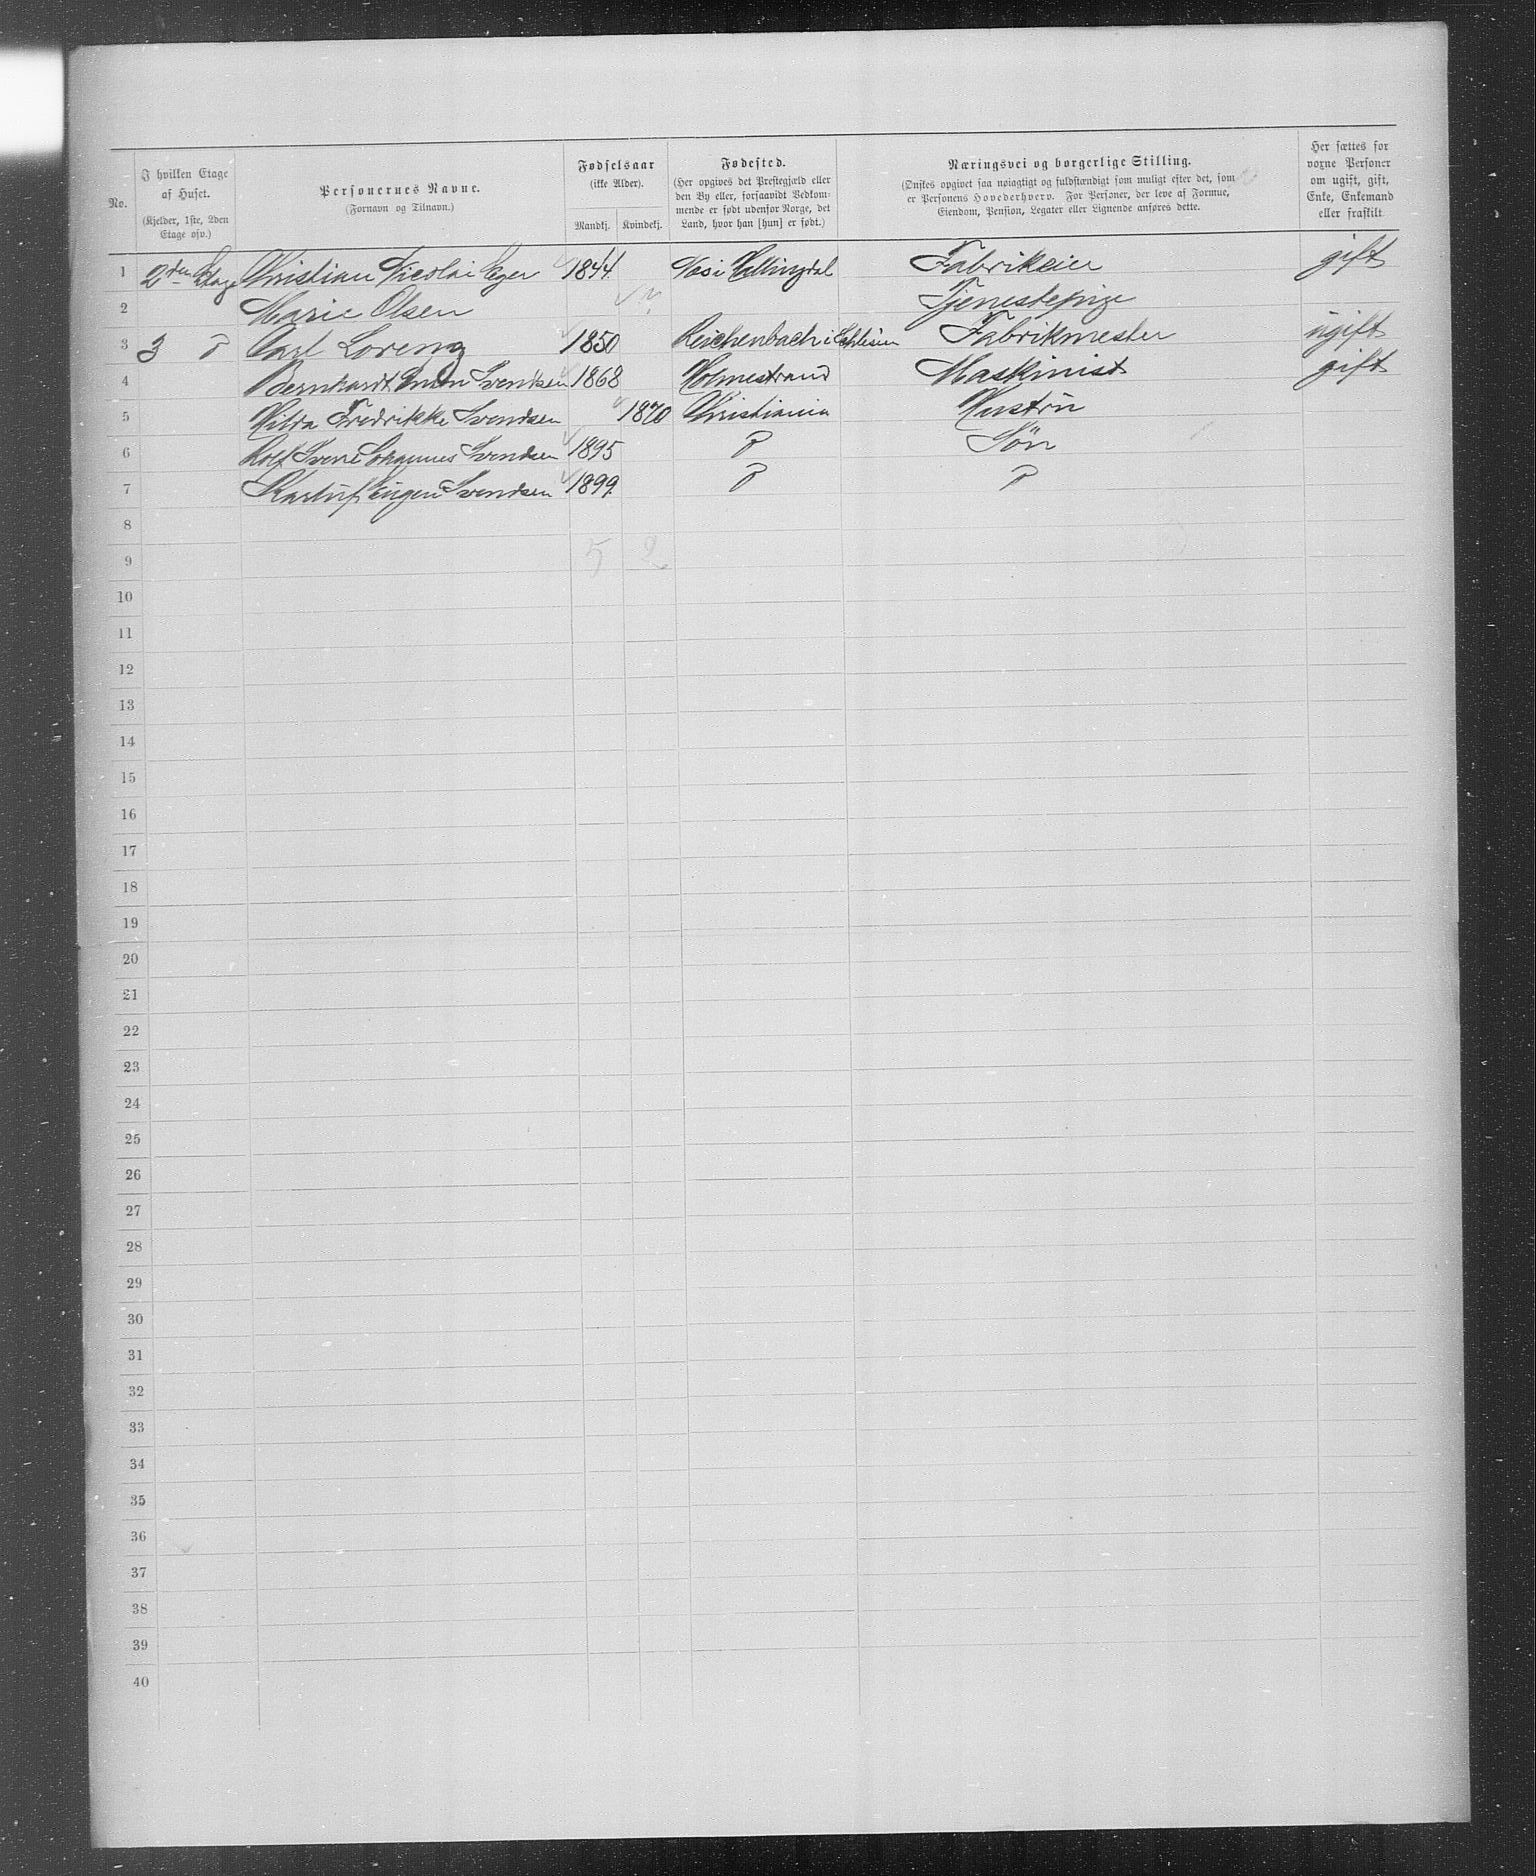 No.
I hvilken Etage af Huset. (Kjelder, 1ste, 2den Etage osv.)
Personernes Navne. (Fornavn og Tilnavn.)
Fødselsaar (ikke Alder). Mandkj. Kvindekj.
Fødested. (Her opgives det Prestegjæld eller den By eller, forsaavidt Vedkommende er født udenfor Norge, det Land, hvor han [hun] er født.)
Næringsvei og borgerlige Stilling. (Ønskes opgivet saa nøiagtigt og fuldstændigt som muligt efter det, som er Personens Hovederhverv. For Personer, der leve af Formue, Eiendom, Pension, Legater eller Lignende anføres dette.)
Her sættes for voxne Personer om ugift, gift, Enke, Enkemand eller fraskilt
1 2den Etage Christian Nicolai Eger 1844 Næs i Hallingdal Fabrikeier gift
2 Marie Olsen ? Tjenestepige
3 3 d Carl Lorenz 1850 Reichenbach i Schlesien Fabrikmester ugift
4 Bernhardt Svendsen 1868 Holmestrand Maskinist gift
5 Hilda Fredrikke Svendsen 1870 Christiania Hustru
6 Rolf Johannes Svendsen 1895 d Søn
7 Eugen Svendsen 1899 d d
8
5 2
9
10
11
12
13
14
15
16
17
18
19
20
21
22
23
24
25
26
27
28
29
30
31
32
33
34
35
36
37
38
39
40